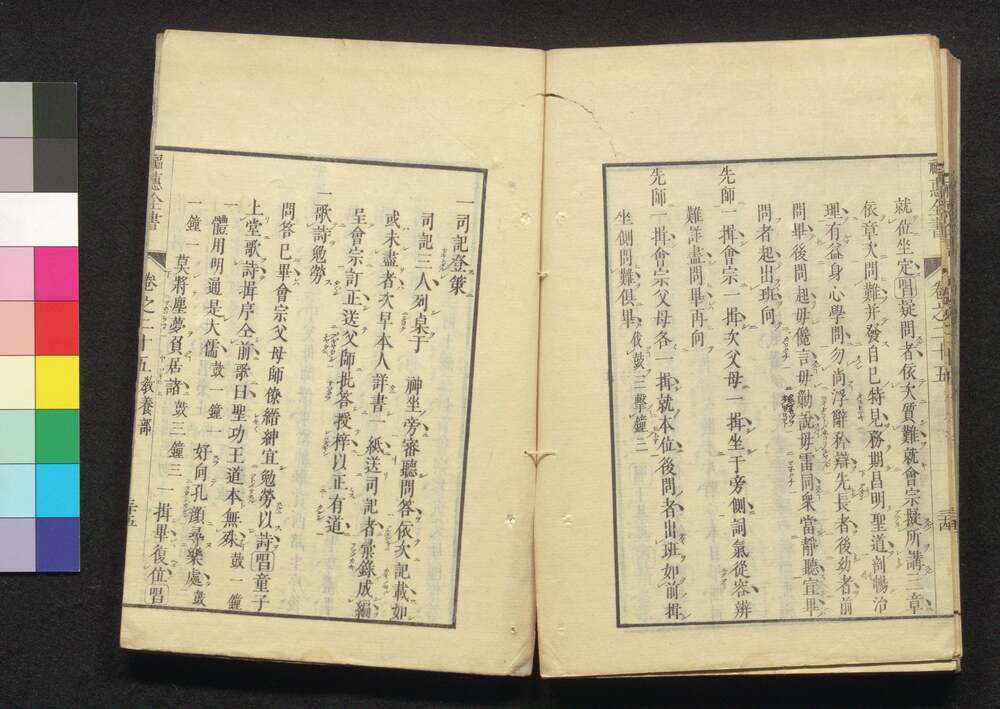 就位坐定唱疑問者依次質難就會宗擬所講三章
依章次問難并發自己特見務期昌明聖道剖暢治
理有益身心學問勿尚浮辭矜辯先長者後幼者前
問畢後問起毋儳言毋勦說毋雷同衆當靜聽宜畢
問者起出班向
先師一揖會宗一揖次父母一揖坐于旁側詞氣從容辨
難詳盡問畢再向
先師一揖會宗父母各一揖就本位後問者出班如前揖
坐側問難俱畢伐鼓三擊鐘二
福惠全書
卷之二十五
三十四
一司記登策
司記三人列桌于 神坐旁審聽問答依次記載如
或未盡者次早本人詳書一紙送司記者彙錄成編
呈會宗訂正送父師批答授梓以正有道
一歌詩勉勞
問答已畢會宗父母師僚縉紳宜勉勞以詩唱童子
上堂歌詩揖序全前歌曰聖功王道本無殊鼓一鐘
一體用明通是大儒鼓一鐘一 好向孔顏尋樂處鼓
一鐘一莫將塵夢貧居諸鼓三鐘三 一揖畢復位唱
福惠全書
卷之二十五教養部
三十五